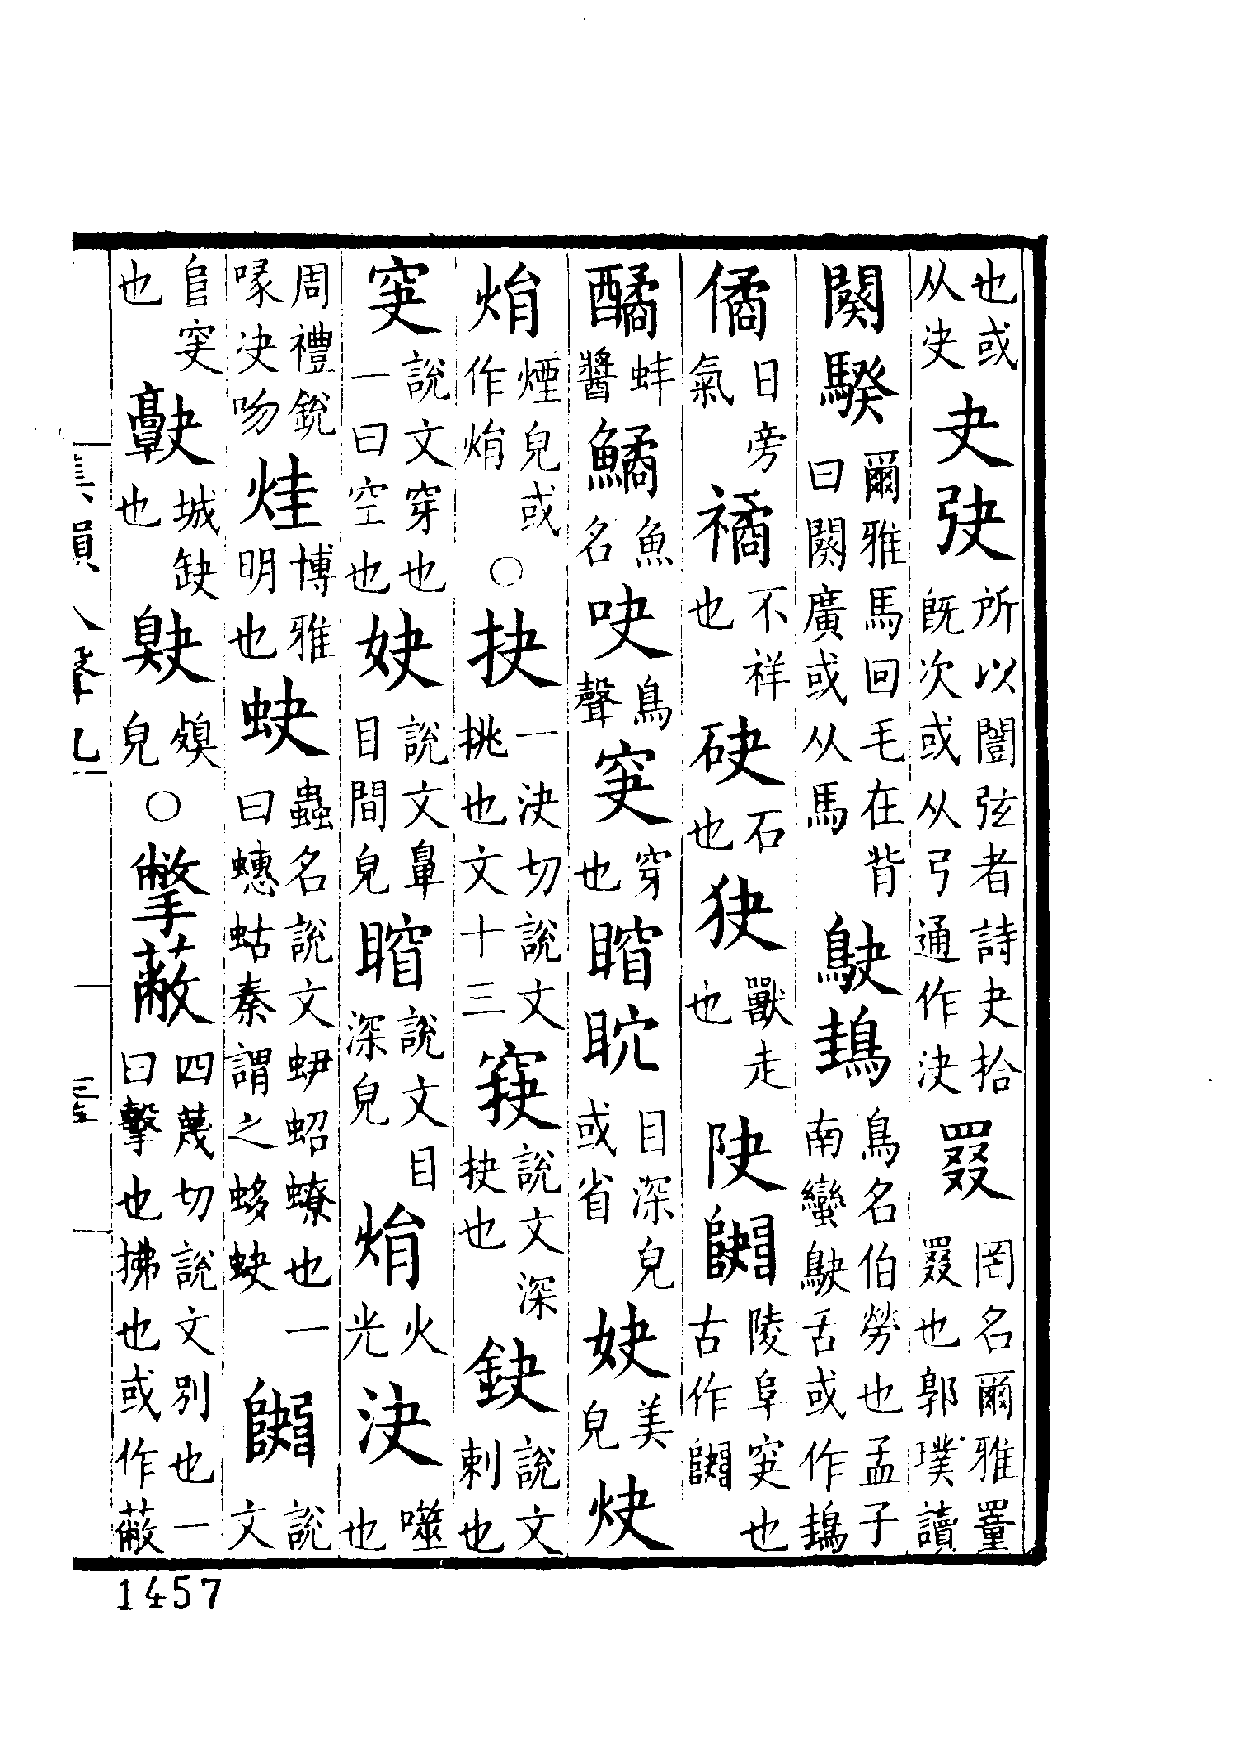 也或从決夬弦所以闓弦者詩夬拾旣次或从弓通作決罬罔名爾雅罿罬也郭璞讀
闋騤爾雅馬回毛在背曰闋廣或从馬鴃鵊鳥名伯勞也孟子南蠻鴃舌或作
僪日旁氣䆷不祥也砄石也狘獸走也䦼陵阜突也古作
醹蚌醬鱊魚名吷鳥聲穾穿也䁓目深皃或省妜美皃炔
焆煙皃或作焆○抉一決切說文挑也文十三䆕說文深抉也鈌說文刺也
突說文穿也一曰空也妜說文鼻目間皃䁓說文目深皃焆火光決噬也
周禮銳喙決吻烓博雅明也蚗蟲名說文蚗蛁蟟也一曰蟪蛄秦謂之蛥蚗說文
𨸏突也城缺也皃○撆蔽四蔑切說文別也一曰擊也拂也或作蔽
1457